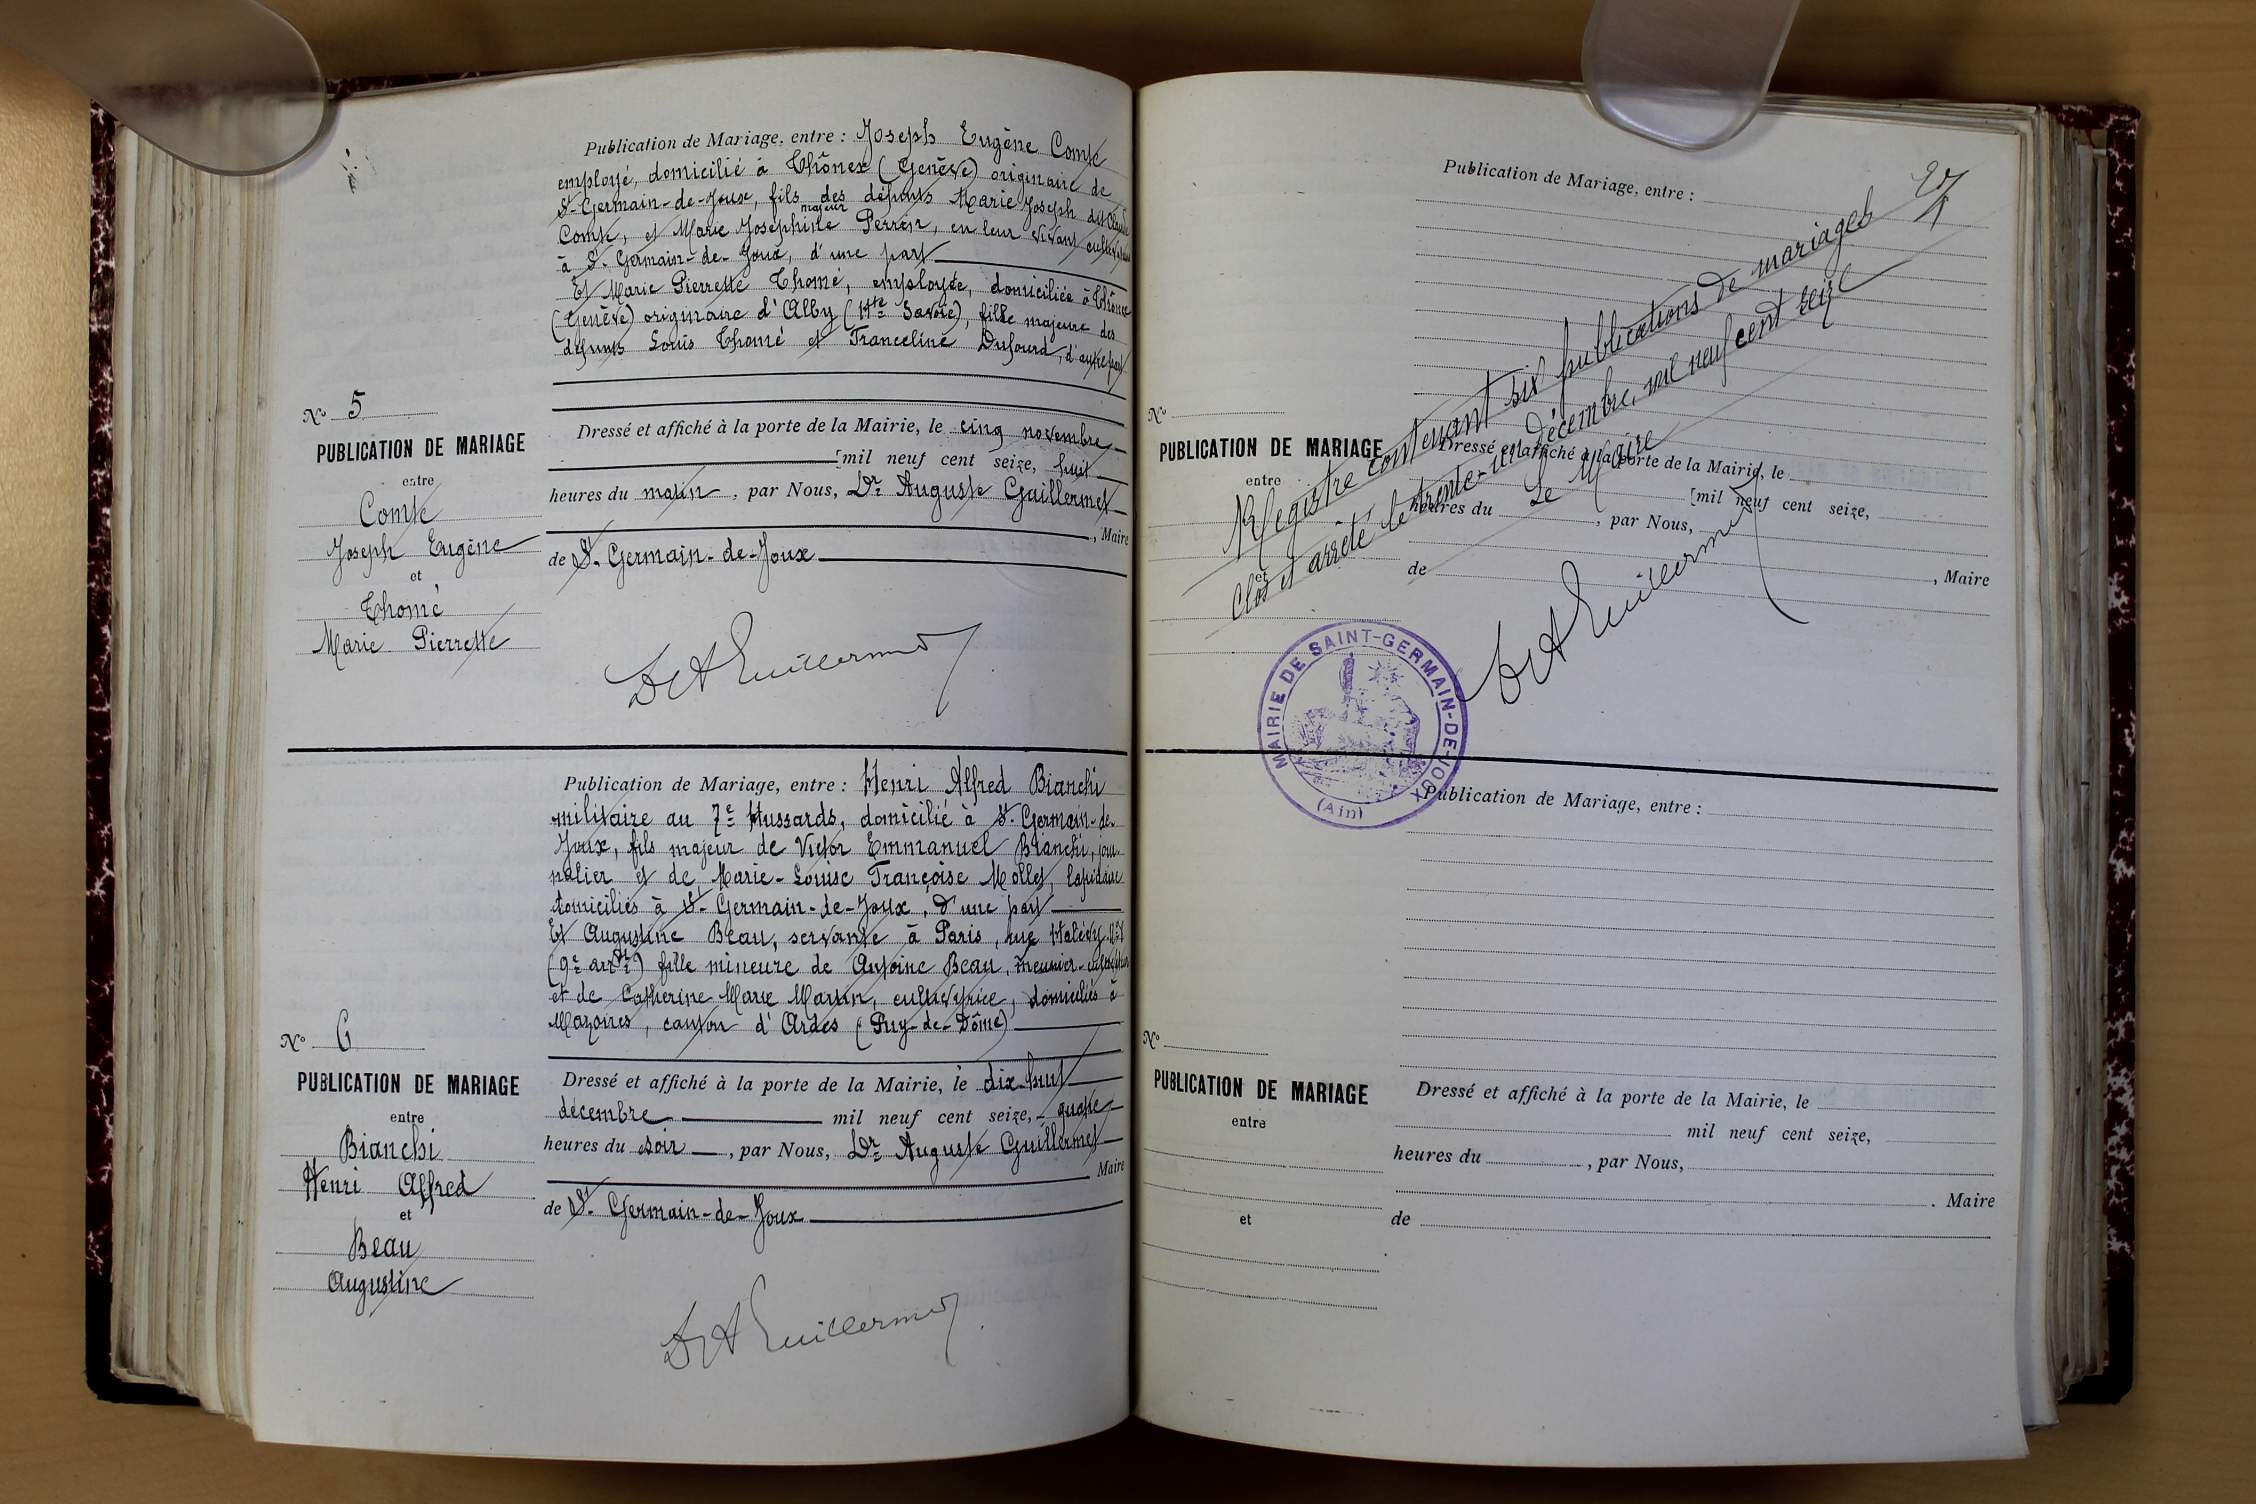 Publication de Mariage, entre : Joseph Eugène Comte
employé, domicilié à Thônex (Genève) originaire de
St-Germain-de-Joux, fils des défunts Marie Joseph dit Claude
majeur
Comte, et Marie Joséphine Perrin, en leur vivant cultivateurs
à St-Germain-de-Joux, d'une part
Et Marie Pierrette Thomé, employée, domiciliée à Thônex
(Genève) originaire d'Alby (Hte Savoie), fille majeure des
défunts Louis Thomé et Franceline Dufourd, d'autre part
No 5
PUBLICATION DE MARIAGE
entre
Comte
Joseph Eugène
et
Thomé
Marie Pierrette
Dressé et affiché à la porte de la Mairie, le cinq novembre
[mil neuf cent seize, huit
heures du matin, par Nous, Dr Auguste Guillermet
, Maire
de St-Germain-de-Joux
Dr A Guillermet
Publication de Mariage, entre : Henri Alfred Bianchi
militaire au 7e Hussards, domicilié à St-Germain-de-
Joux, fils majeur de Victor Emmanuel Bianchi, jour-
nalier et de Marie-Louise Françoise Mollet, lapidaire
domiciliés à St-Germain-de-Joux, d'une part
Et Augustine Beau, servante à Paris, rue Halévy
(9e arrt) fille mineure de Antoine Beau, meunier-cultivateur
et de Catherine Marie Martin, cultivatrice, domiciliés à
Mazoires, canton d'Ardes (Puy-de-Dôme)
No 6
PUBLICATION DE MARIAGE
entre
Bianchi
Henri Alfred
et
Beau
Augustine
Dressé et affiché à la porte de la Mairie, le dix-huit
décembre mil neuf cent seize, quatre
heures du soir, par Nous, Dr Auguste Guillermet
Maire
de St-Germain-de-Joux
Dr A Guillermet
Publication de Mariage, entre :
No
PUBLICATION DE MARIAGE
entre
et
Dressé et affiché à la porte de la Mairie, le
[mil neuf cent seize,
heures du , par Nous,
de , Maire
Registre contenant six publications de mariages
Clos et arrêté le trente-un décembre, mil neuf cent seize
Le Maire
Dr A Guillermet
MAIRIE DE SAINT-GERMAIN-DE-JOUX
(Ain)
Publication de Mariage, entre :
No
PUBLICATION DE MARIAGE
entre
et
Dressé et affiché à la porte de la Mairie, le
mil neuf cent seize,
heures du , par Nous,
. Maire
de